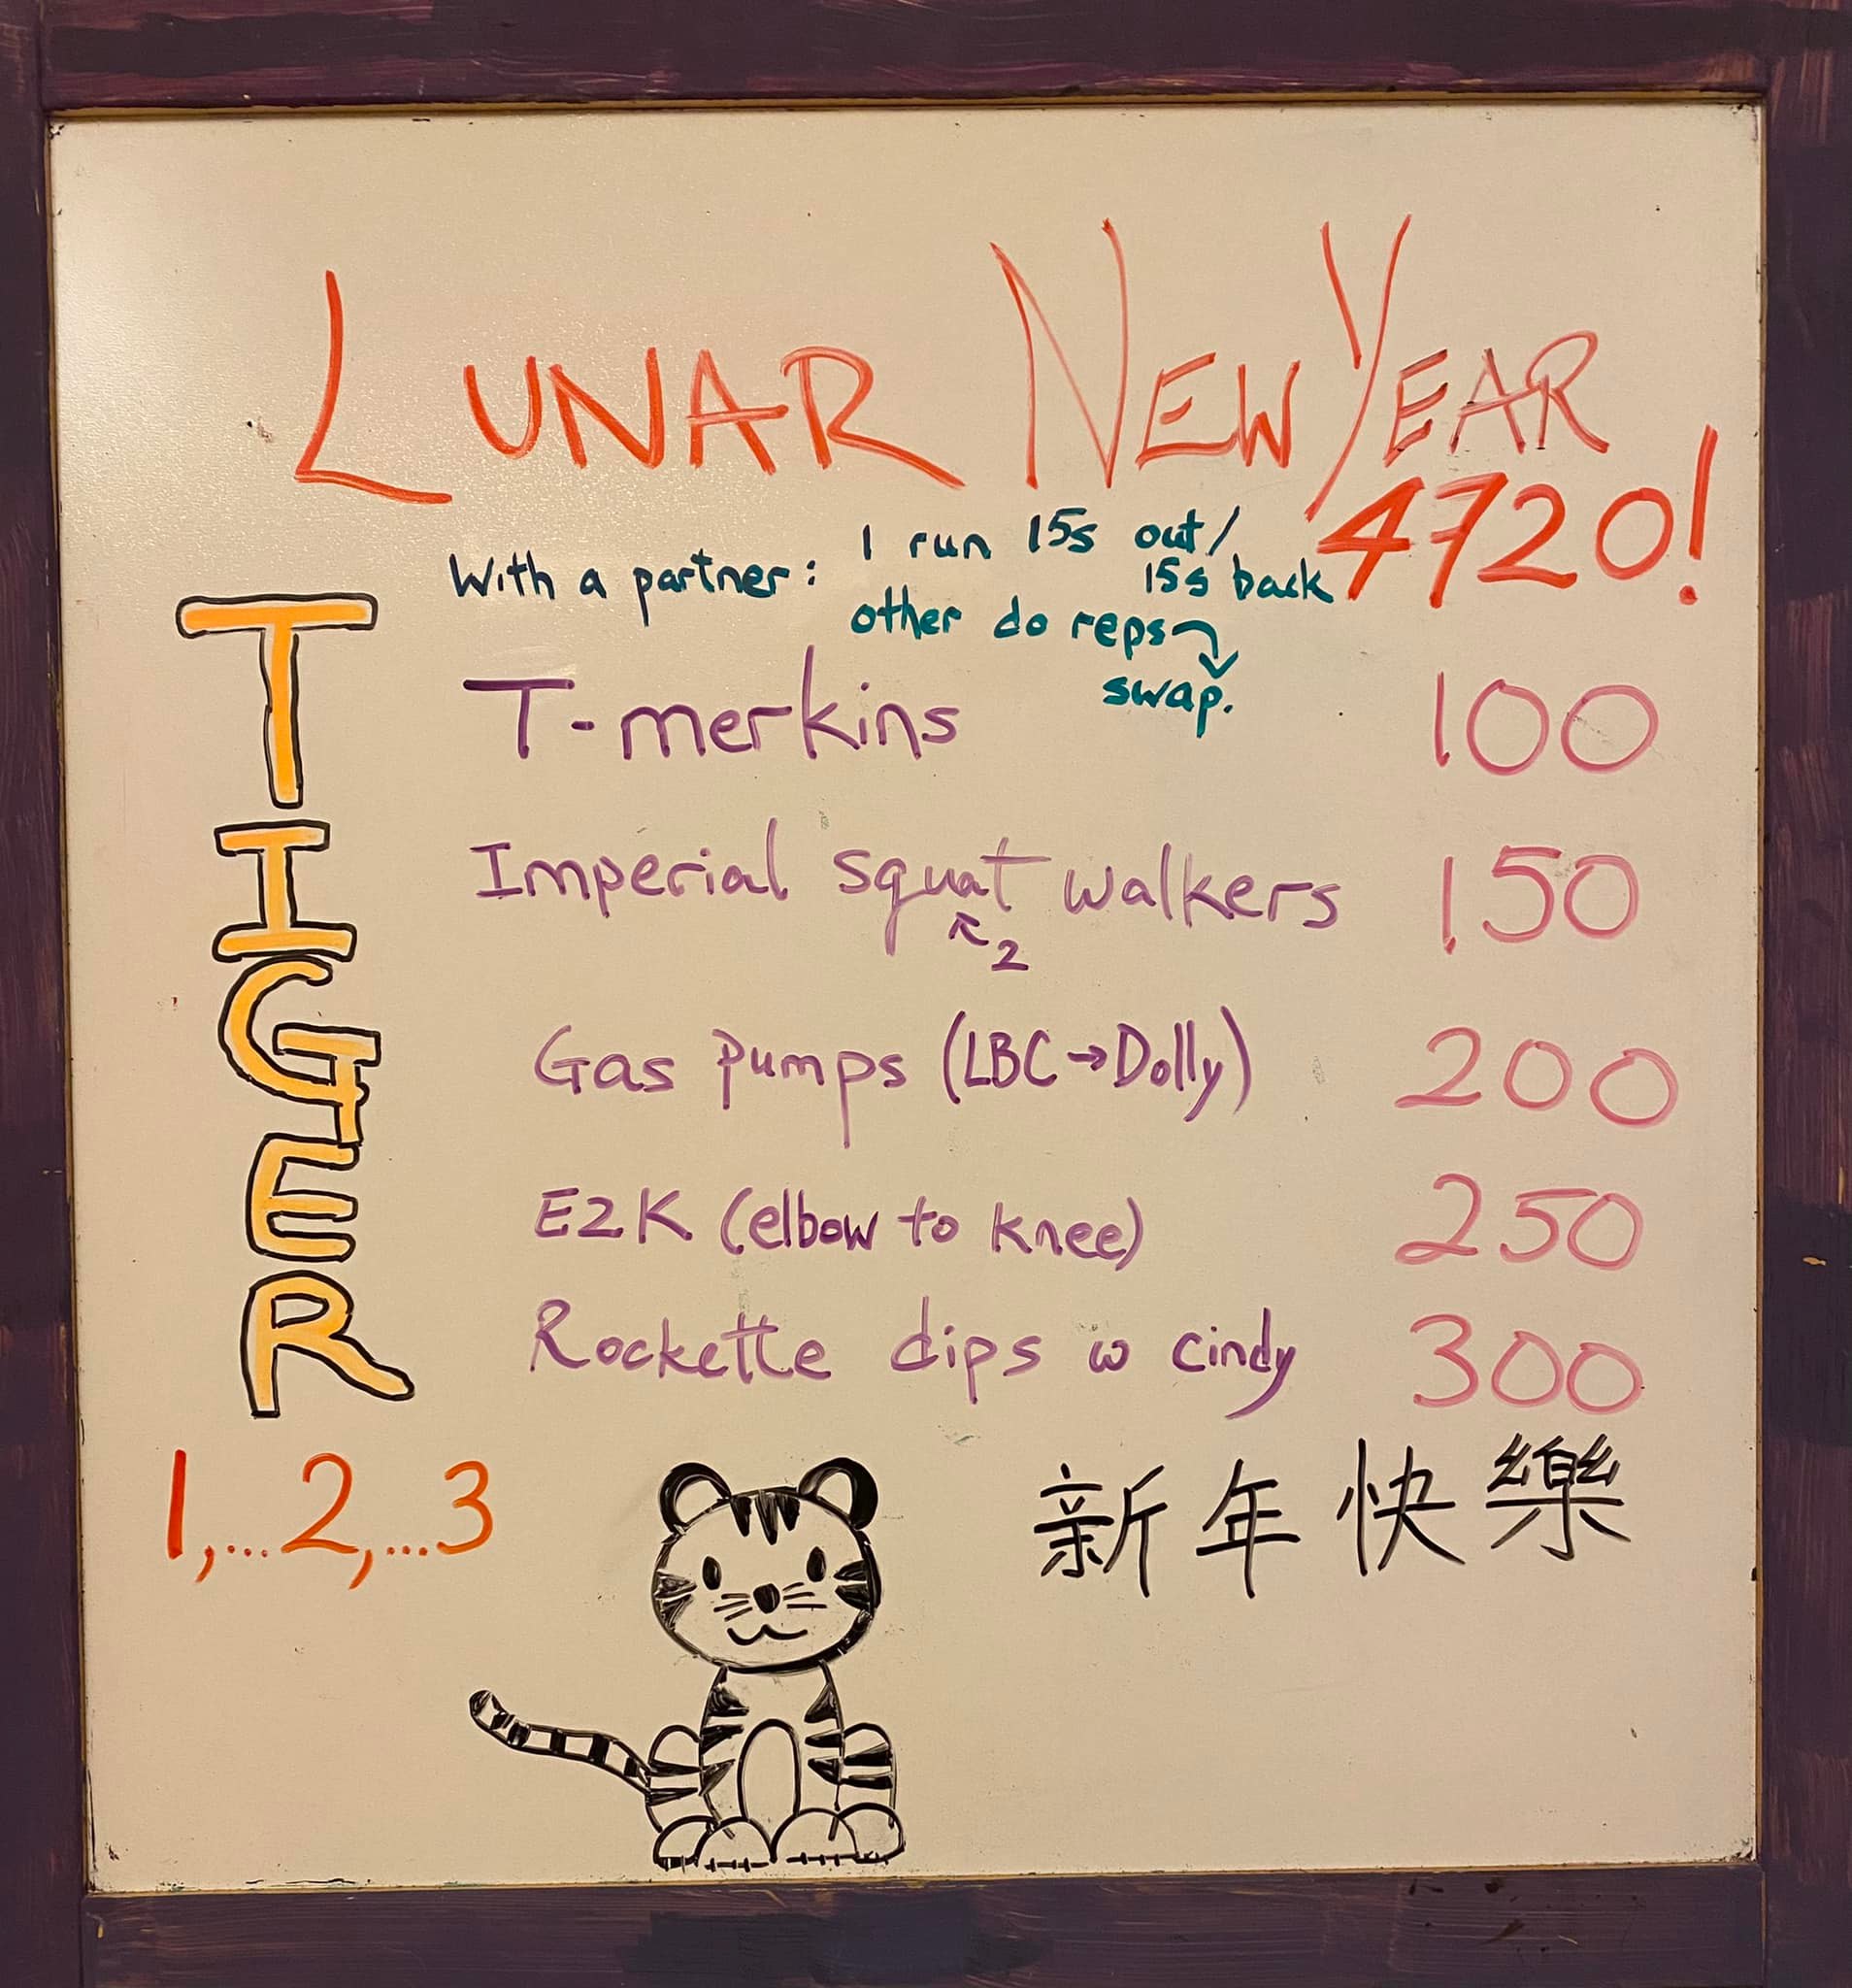 LUNAR NEW YEAR
4720!
With a partner: 1 run 15s out/
15s back
other do reps
swap.
TIGER
T-merkins 100
Imperial squat walkers 150
2
Gas pumps (LBC→Dolly) 200
E2K (elbow to knee) 250
Rockette dips w cindy 300
1,...2,...3
新年快樂